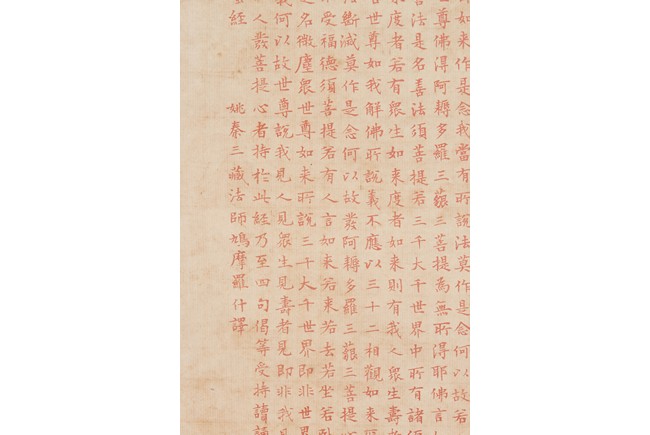 如來作是念我當有所說法莫作是念何以故若
尊佛得阿耨多羅三藐三菩提為無所得耶佛言
善法是名善法須菩提若三千大千世界中所有諸須
來度者若有眾生如來度者如來則有我人眾生壽者
世尊如我解佛所說義不應以三十二相觀如來
法斷滅莫作是念何以故發阿耨多羅三藐三菩提心
受福德須菩提若有人言如來若來若去若坐若臥
是名微塵眾世尊如來所說三千大千世界即非世界
我何以故世尊說我見人見眾生見壽者見即非我見
人發菩提心者持於此經乃至四句偈等受持讀誦
經 姚秦三藏法師鳩摩羅什譯